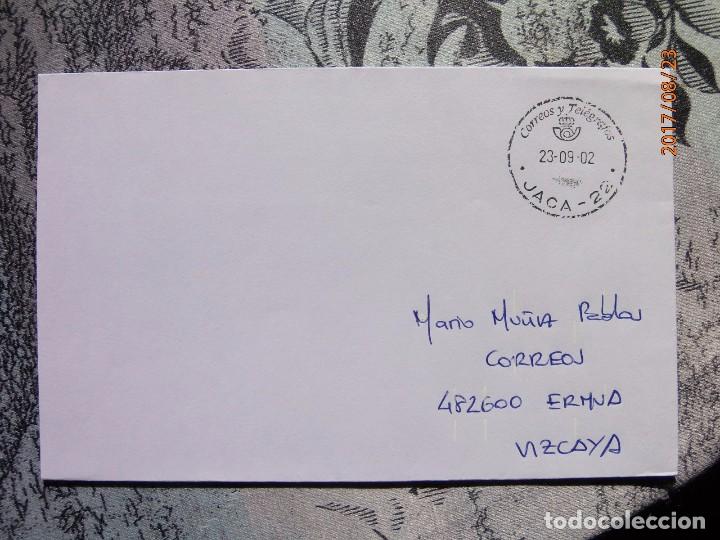 2017/08/23
Correos y Telégrafos
23-09-02
JACA-22
Mario Muñia Pablos
CORREOS
482600 ERMUA
VIZCAYA
todocoleccion